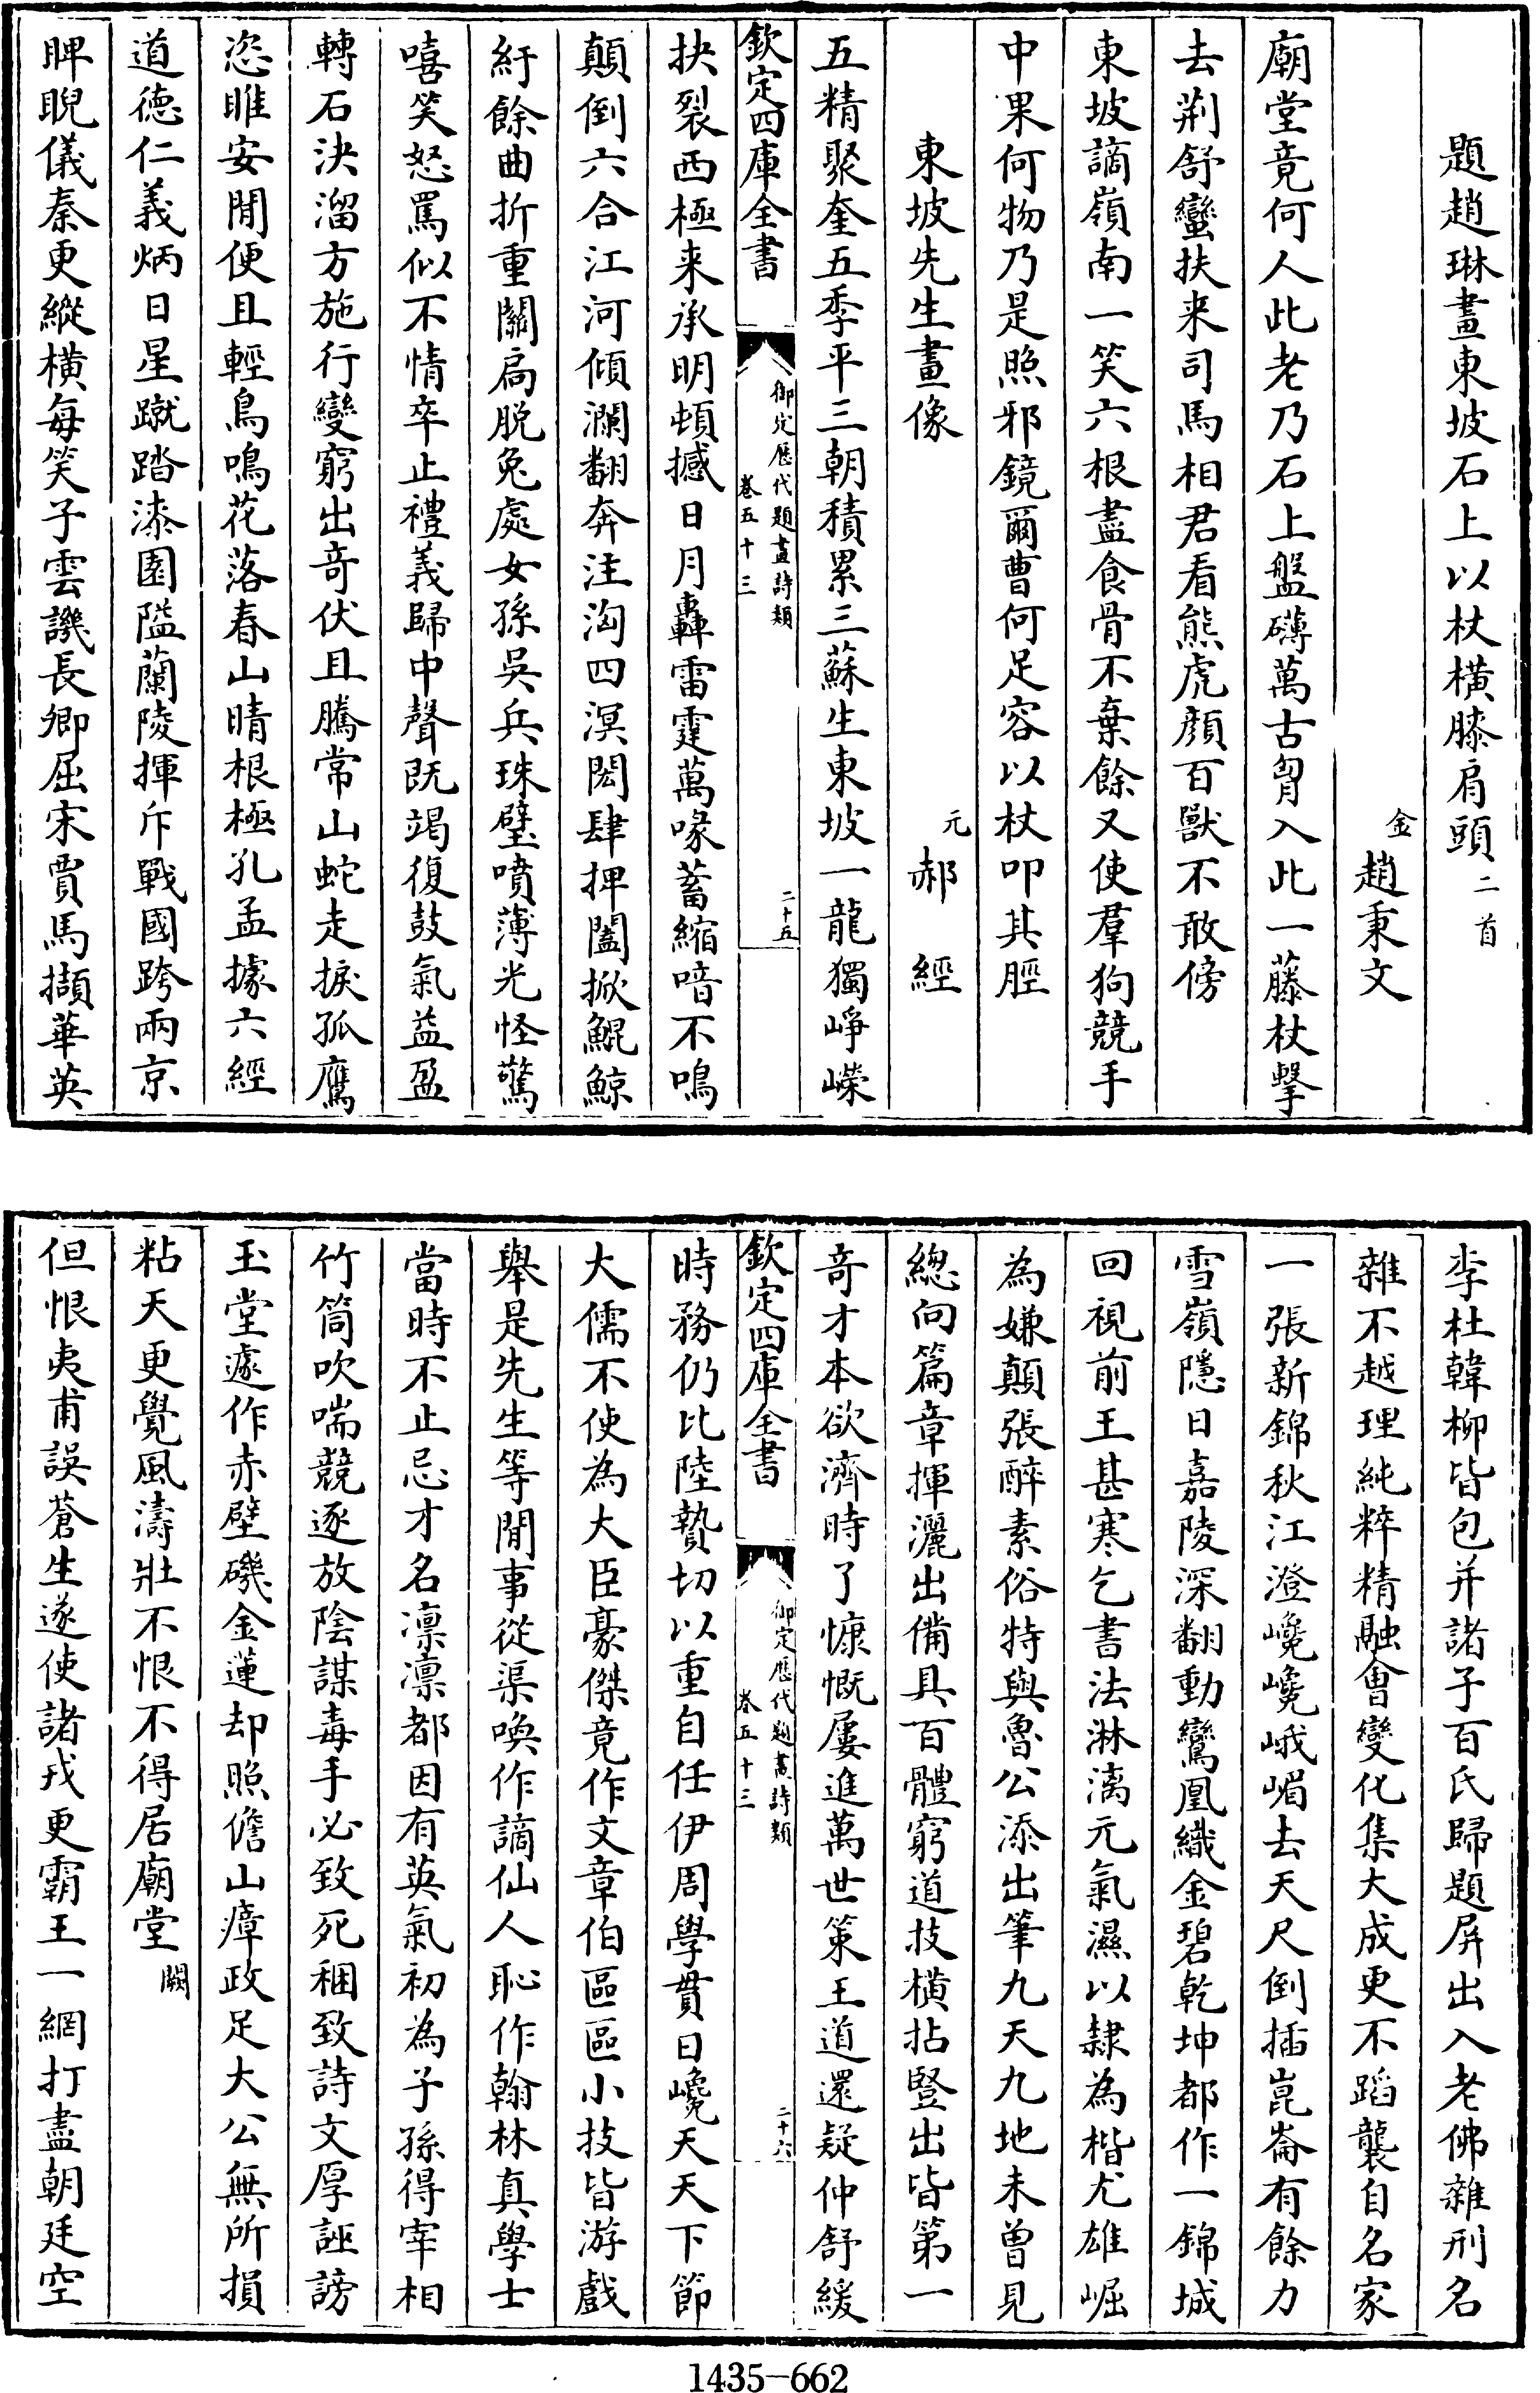 題趙琳畫東坡石上以杖橫膝肩頭二首
金趙秉文
廟堂竟何人此老乃石上盤礴萬古胷入此一藤杖擊
去荆舒蠻扶来司馬相君看熊虎顔百獸不敢傍
東坡謫嶺南一笑六根盡食骨不棄餘又使羣狗競手
中果何物乃是照邪鏡爾曹何足容以杖叩其脛
東坡先生畫像
元郝經
五精聚奎五季平三朝積累三蘇生東坡一龍獨崢嶸
欽定四庫全書
御定歷代題畫詩類
卷五十三
二十五
抉裂西極来承明頓撼日月轟雷霆萬喙蓄縮喑不鳴
顛倒六合江河傾瀾翻奔注洶四溟閎肆捭闔掀鯤鯨
紆餘曲折重關扃脱兔處女孫吳兵珠璧噴薄光怪驚
嘻笑怒罵似不情卒止禮義歸中聲既竭復鼓氣益盈
轉石決溜方施行變窮出竒伏且騰常山蛇走捩孤鷹
恣睢安閒便且輕鳥鳴花落春山晴根極孔孟據六經
道徳仁義炳日星蹴踏漆園隘蘭陵揮斥戰國跨兩京
睥睨儀秦更縱橫每笑子雲譏長卿屈宋賈馬擷華英
李杜韓柳皆包并諸子百氏歸題屏出入老佛雜刑名
雜不越理純粹精融㑹變化集大成更不蹈襲自名家
一張新錦秋江澄巉巉峨嵋去天尺倒插崑崙有餘力
雪嶺隱日嘉陵深翻動鸞凰織金碧乾坤都作一錦城
回視前王甚寒乞書法淋漓元氣濕以隷為楷尤雄崛
為嫌顛張醉素俗特與魯公添出筆九天九地未曾見
總向篇章揮灑出備具百體窮道技橫拈豎出皆第一
竒才本欲濟時了慷慨屢進萬世策王道還疑仲舒緩
欽定四庫全書
御定歷代題畫詩類
卷五十三
二十六
時務仍比陸贄切以重自任伊周學貫日巉天天下節
大儒不使為大臣豪傑竟作文章伯區區小技皆游戲
舉是先生等閒事從渠喚作謫仙人恥作翰林真學士
當時不止忌才名凛凛都因有英氣初為子孫得宰相
竹筒吹喘競逐放陰謀毒手必致死稛致詩文厚誣謗
玉堂遽作赤壁磯金蓮却照儋山瘴政足大公無所損
粘天更覺風濤壯不恨不得居廟堂闕
但恨夷甫誤蒼生遂使諸戎更霸王一網打盡朝廷空
1435-662